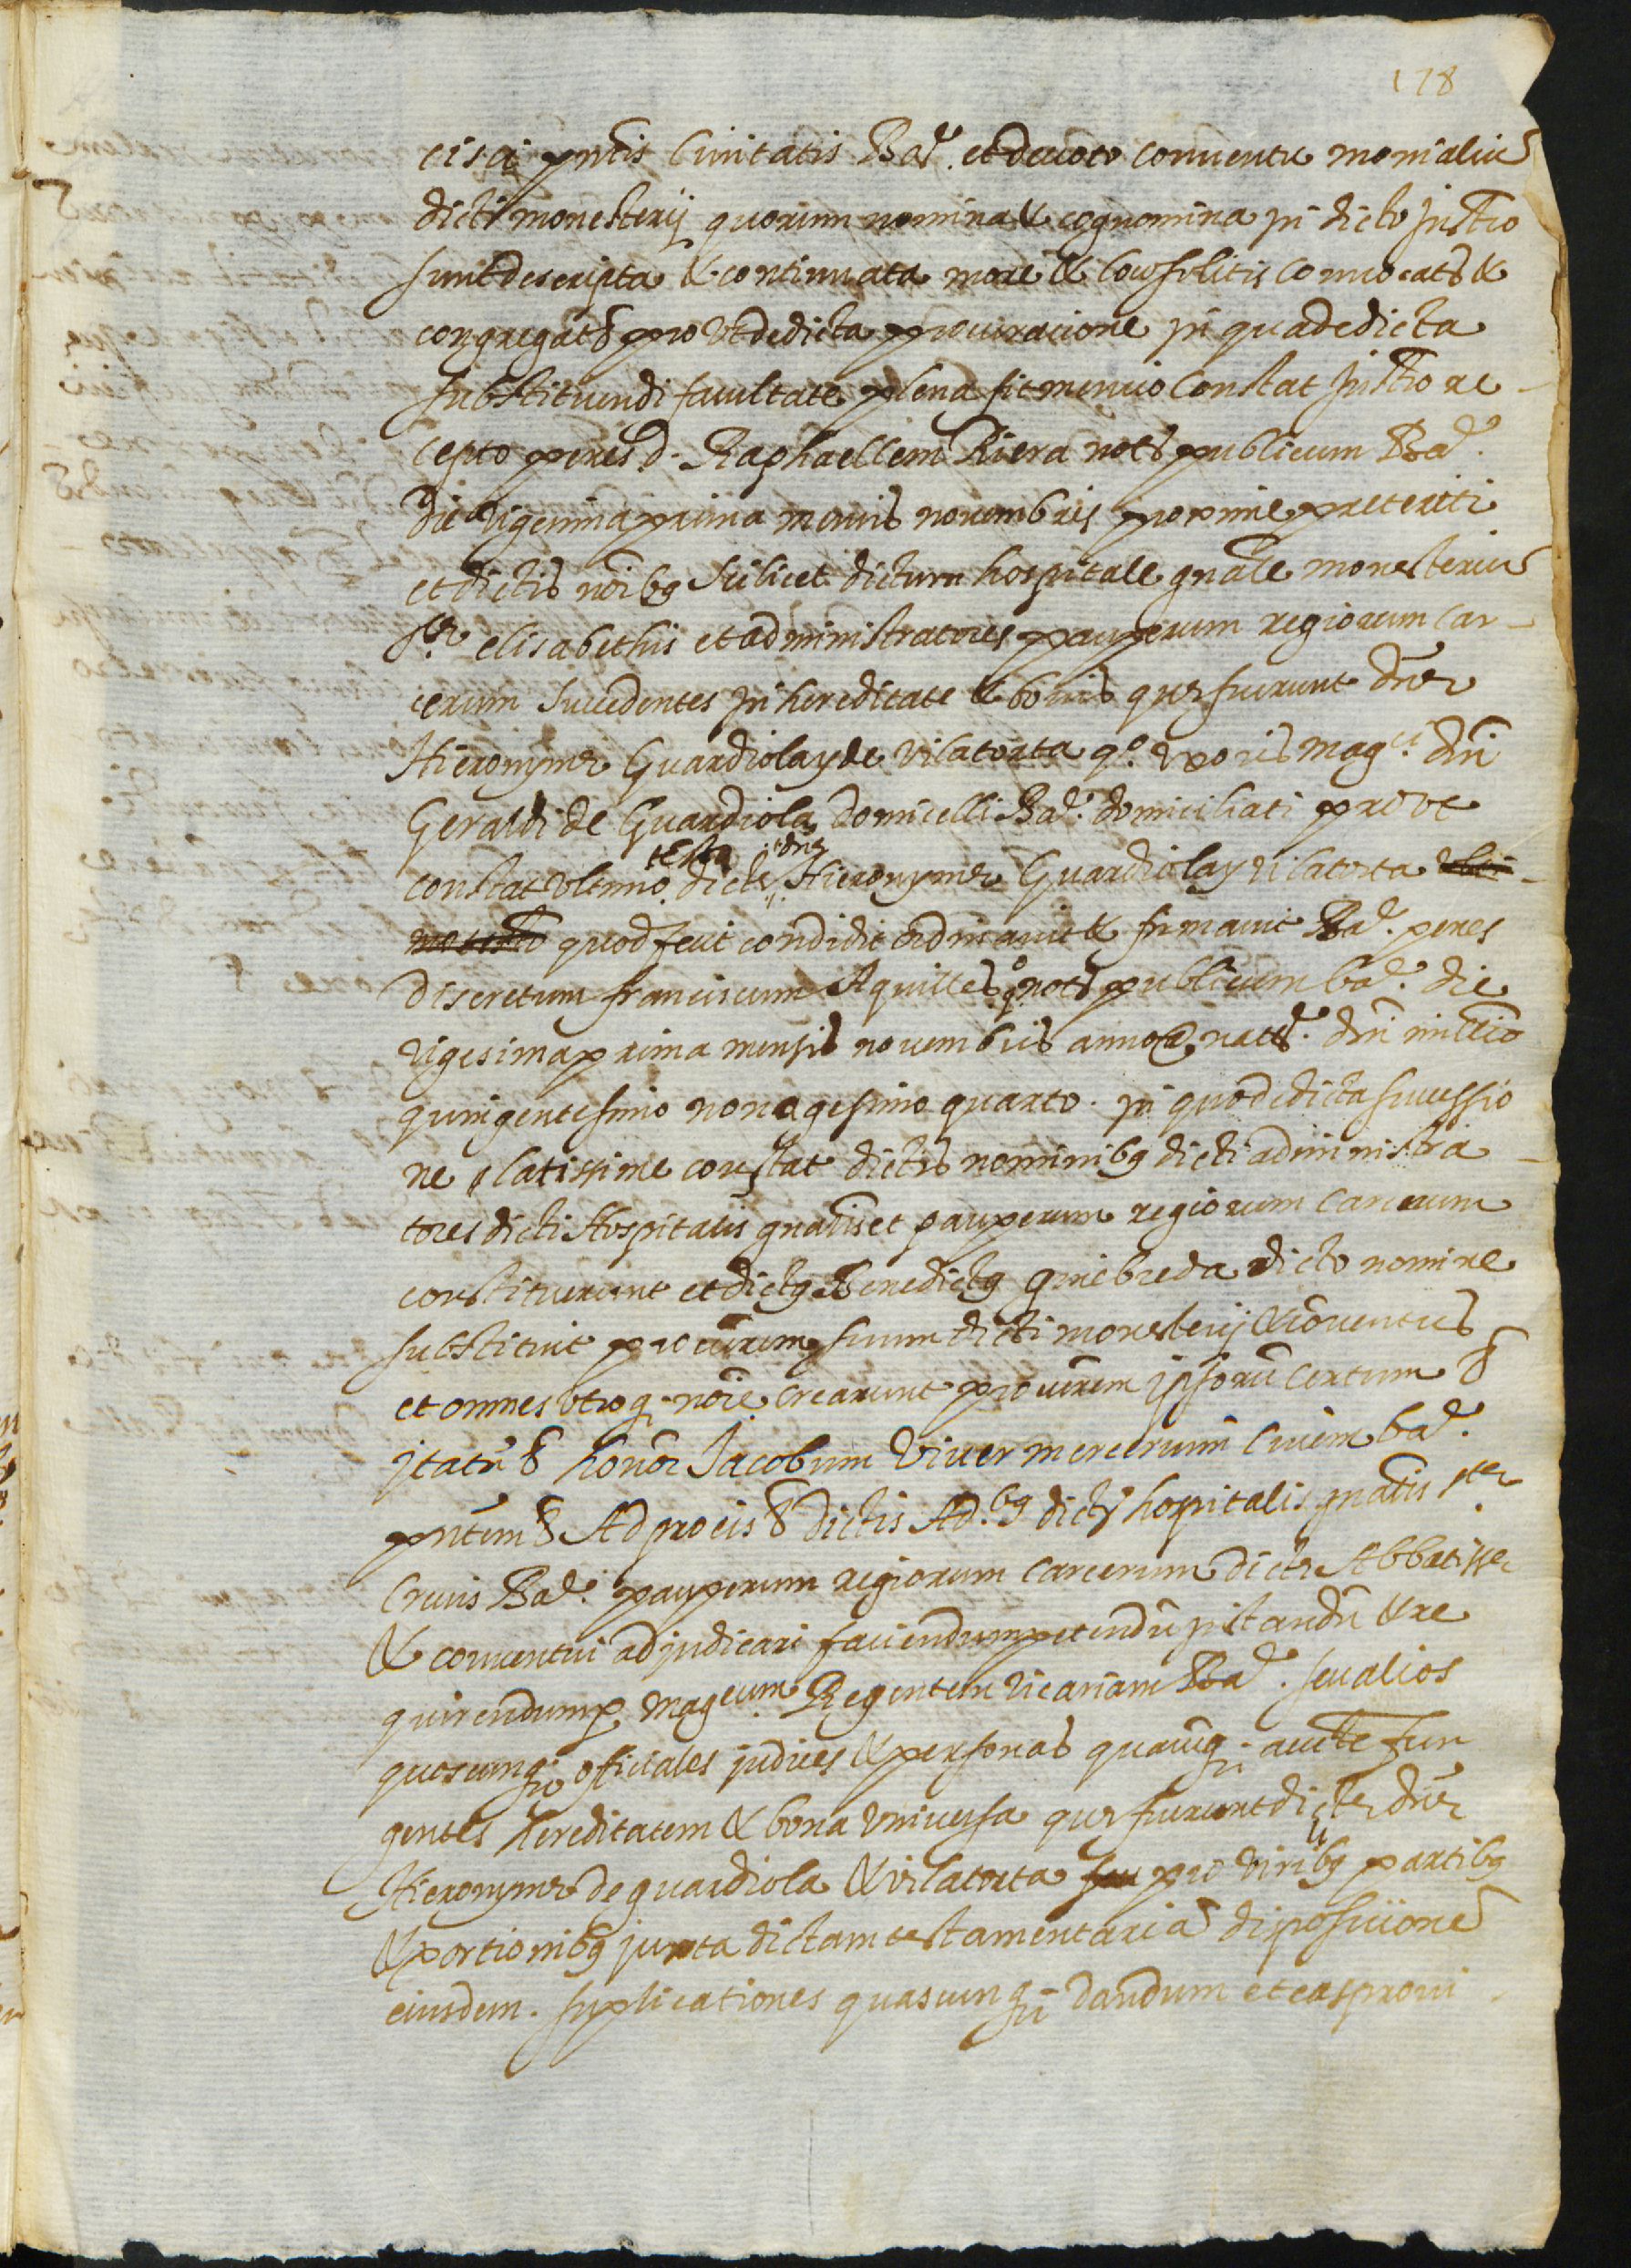 178
cisci pntis Civitatis Bar. et devoto conventu monialiu
dicti monesterij quorum nomina & cognomina in dicto Instro
sunt descripta & continuata more & loco solitis convocats &
congregats prout de dicta procuracione in qua de dicta
substituendi facultate plena fit mencio constat Instro re-
cepto penes d. Raphaellem Riera nots publicum Bar.
die vigesimaprima mensis novembris proxime preteriti
et dictis noibq scilicet dictum hospitale gnale monesteriu
ste elisabethis et administratores pauperum regiorum car-
cerum succedentes in hereditate & bonis que fuerunt dne
Hieronyme Guardiola y de vilatorta qo. uxoris magci. dni
Geraldi de Guardiola domicelli Bar. domiciliati prout
constat ultimo testo dicte dne Hieronyme Guardiola y vilatorta ulti-
mo testo quod fecit condidit ordinavit & firmavit Bar. penes
Discretum franciscum Aquiles qo nots publicum bar. die
vigesimaprima mensis novembris anno a natte. dni millmo
quingentesimo nonagesimo quarto. in quo de dicta successio
ne latissime constat dictis nominibq dicti administra-
tores dicti Hospitalis gnalis et pauperum regiorum carcerum
constituerunt et dictq Benedictq Ginebreda dicto nomine
substituit procurem suum dicti monesterij & conventus
et omnes utroq. noie crearunt procurem ipsoru certum &
itatn & honor Jacobum Viver mercerium civem bar.
pntem & Ad pro eis & dictis Ad.bq dicti hospitalis gnalis ste
Crucis Bar. pauperum regiorum carcerum dicte Abbatisse
& conventui adjudicari faciendum petendu instandu & re
quirendum p magcum Regentem vicariam Bar. seu alios
quoscunq officiales judices & personas quacunq aucte fun
gentes hereditatem & bona universa que fuerunt dicte dne
Hieronyme de guardiola & vilatorta seu pro virilibq partibq
& portionibq juxta dictam testamentaria disposicione
eiusdem. suplicationes quascunq dandum et eas provi